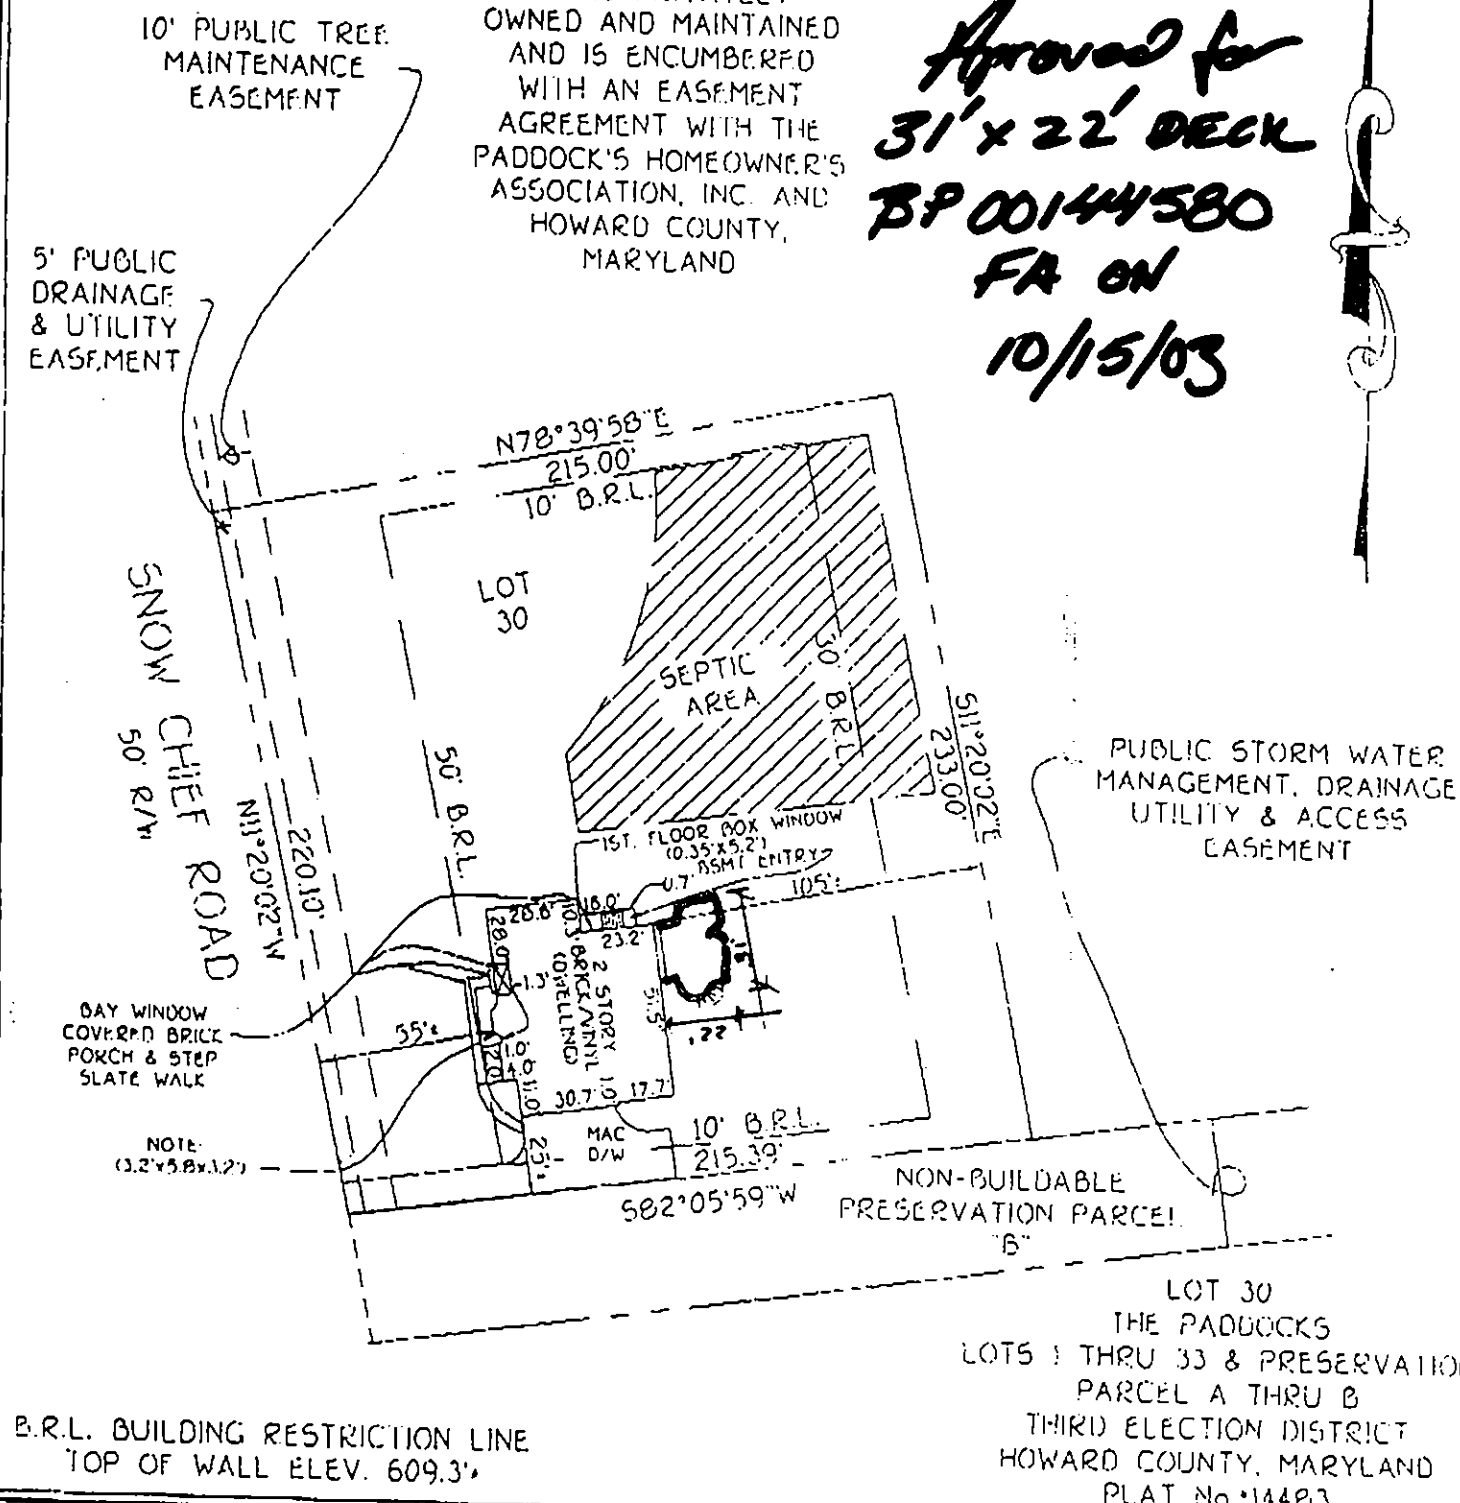 10' PUBLIC TREE
MAINTENANCE
EASEMENT
OWNED AND MAINTAINED
AND IS ENCUMBERED
WITH AN EASEMENT
AGREEMENT WITH THE
PADDOCK'S HOMEOWNER'S
ASSOCIATION, INC. AND
HOWARD COUNTY,
MARYLAND
Aproved for
31' x 22' DECK
BP 00144580
FA ON
10/15/03
5' PUBLIC
DRAINAGE
& UTILITY
EASEMENT
N78°39'58"E
215.00'
10' B.R.L.
LOT
30
SEPTIC
AREA
30' B.R.L.
S11°20'02"E
233.00'
SNOW CHIEF ROAD
50' R/W
N11°20'02"W
220.10'
50' B.R.L.
PUBLIC STORM WATER
MANAGEMENT, DRAINAGE
UTILITY & ACCESS
EASEMENT
1ST. FLOOR BOX WINDOW
(0.35'x5.2')
BSMT ENTRY
0.7'
105'±
28.0'
10.3'
18.0'
23.2'
2 STORY
BRICK/VINYL
(DWELLING)
1.3'
51.5'
22
BAY WINDOW
COVERED BRICK
PORCH & STEP
SLATE WALK
55'±
1.0'
4.0'
12.0'
11.0'
30.7'
1.0'
17.7'
NOTE:
(3.2'x5.8'x3.2')
25'±
MAC
D/W
10' B.R.L.
215.39'
S82°05'59"W
NON-BUILDABLE
PRESERVATION PARCEL
"B"
LOT 30
THE PADDOCKS
LOTS 1 THRU 33 & PRESERVATIO
PARCEL A THRU B
THIRD ELECTION DISTRICT
HOWARD COUNTY, MARYLAND
PLAT No.
B.R.L. BUILDING RESTRICTION LINE
TOP OF WALL ELEV. 609.3'±